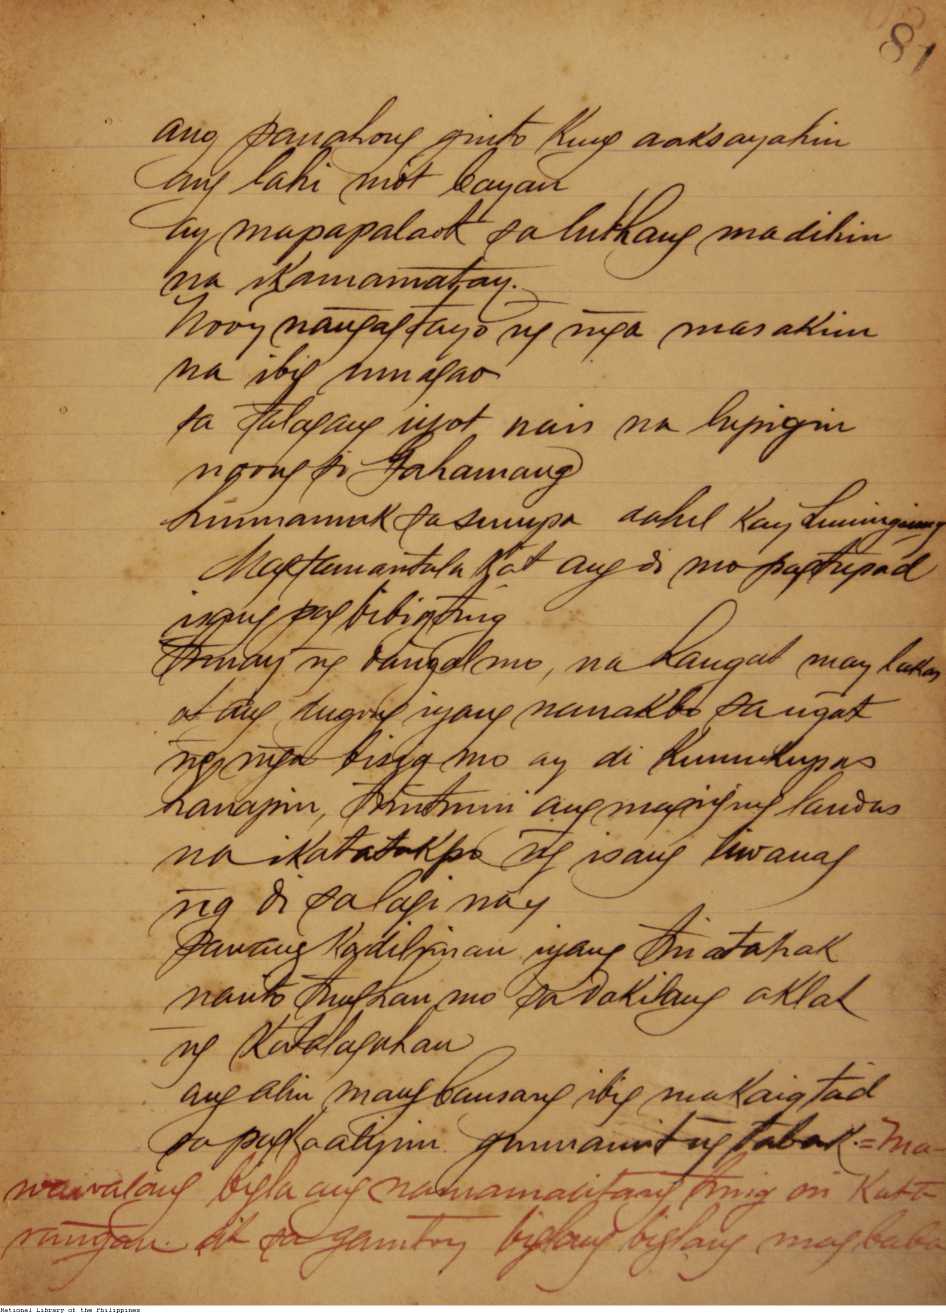 81
ang panahong ginto kung aaksayahin
ang lahi mo't bayan
ay mapapalaot sa luthang madilim
na ikamamatay.
Nooy nangag tayo ng mga masakim
na ibig umagao
sa talagang iyo't nais na lupigin
noong si Gahamang
Lumamuk sa sumpa dahil kay Luningning
Magtamantala ka't ang di mo pagtupad
isang pag bibigting
tunay ng dangal mo, na hangat may lakas
at ang dugong iyang nanakbo sa ugat
ng mga bisig mo ay di kumukupas
hanapin, tuntunin ang maging landas
na ikatatakpo ng isang liwanag
ng di palagi nay
pawang kadiliman iyang tinatahak
nanito tunghan mo sa dakilang aklat
ng Katalagahan
ang alin mang bansang ibig makaigtad
sa pagkaalipin gumamit ng tabak. = Ma-
wawalang bigla ang namamalitang tinig ni Kata-
rungan. At sa ganitoy biglang biglang magbaba
National Library of the Philippines